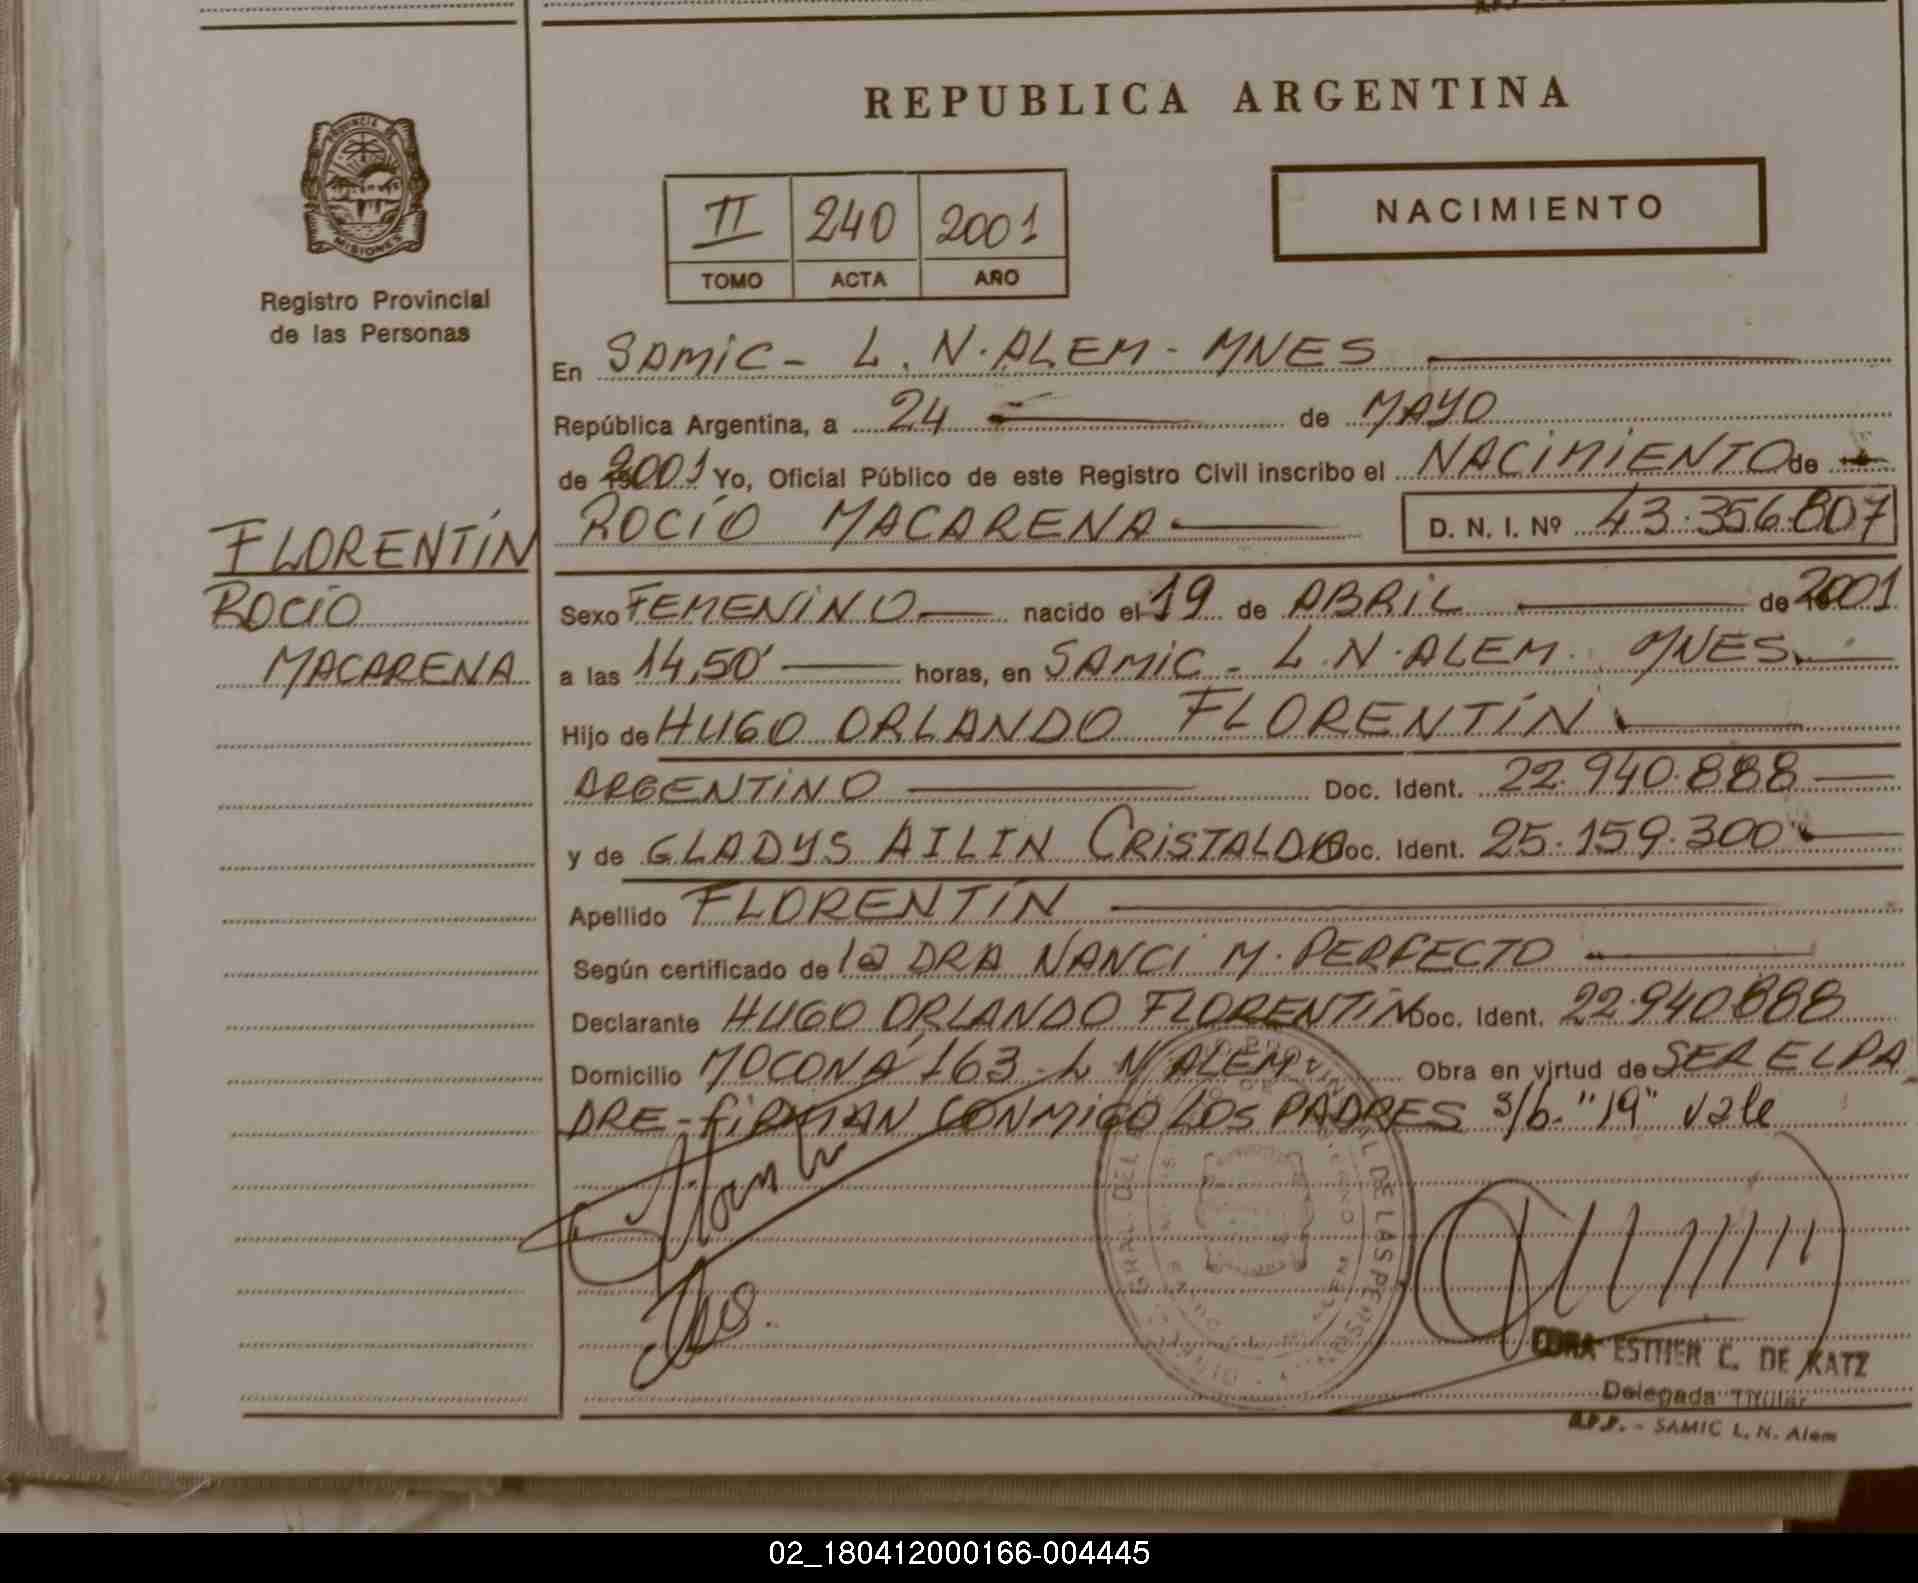 REPUBLICA ARGENTINA
PROVINCIA DE
MISIONES
Registro Provincial
de las Personas
II 240 2001
TOMO ACTA AÑO
NACIMIENTO
En SAMiC - L. N. ALEM - MNES
República Argentina, a 24 de MAYO
de 2001 Yo, Oficial Público de este Registro Civil inscribo el NACiMiENTO de
ROCÍO MACARENA D. N. I. Nº 43.356.807
FLORENTÍN
ROCÍO
MACARENA
Sexo FEMENiNO nacido el 19 de ABRiL de 2001
a las 14,50' horas, en SAMiC - L. N. ALEM. MNES.
Hijo de HUGO ORLANDO FLORENTÍN
ARGENTiNO Doc. Ident. 22.940.888
y de GLADYS AILIN CRiSTALDO Doc. Ident. 25.159.300
Apellido FLORENTÍN
Según certificado de la DRA NANCi M. PERFECTO
Declarante HUGO ORLANDO FLORENTÍN Doc. Ident. 22.940888
Domicilio MOCONÁ 163 - L N ALEM Obra en virtud de SER EL PA
DRE - FiRMAN CONMiGO LOS PADRES s/b. "19" vale
CORA ESTHER C. DE KATZ
Delegada Titular
R.P.P. - SAMIC L. N. Alem
02_180412000166-004445